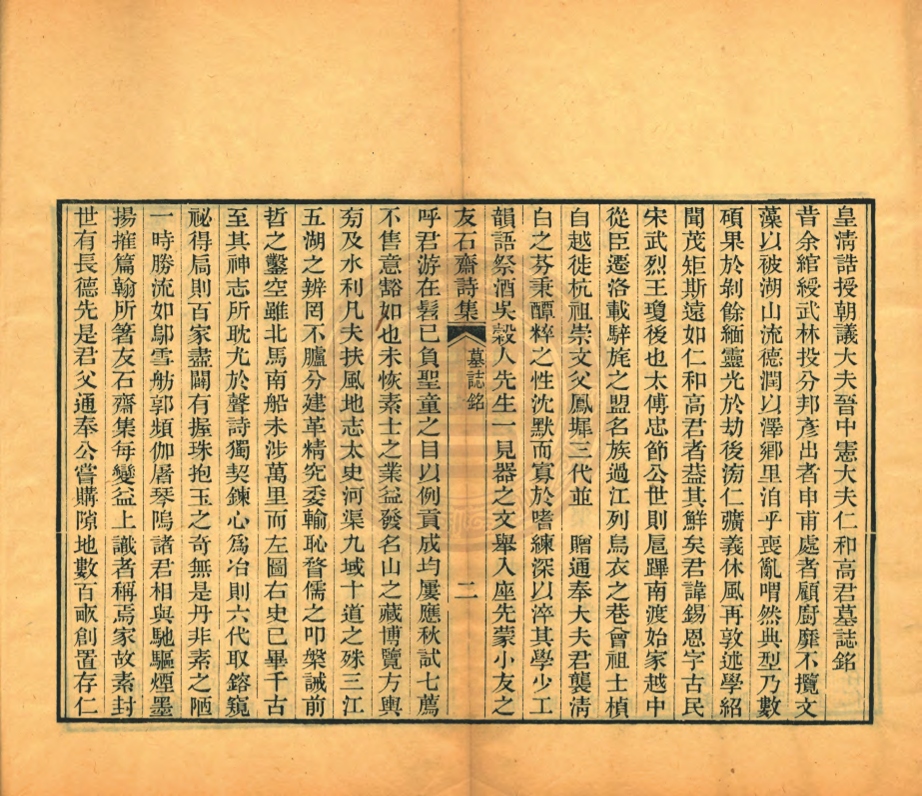 皇淸誥授朝議大夫晉中憲大夫仁和高君墓誌銘
昔余綰綬武林投分邦彥出者申甫處者顧廚靡不攬文
藻以被湖山流德潤以澤鄉里洎乎喪亂喟然典型乃數
碩果於剝餘緬靈光於劫後㳺仁彍義休風再敦述學紹
聞茂矩斯遠如仁和高君者葢其鮮矣君諱錫恩字古民
宋武烈王瓊後也太傅忠節公世則扈蹕南渡始家越中
從臣遷洛載騂旄之盟名族過江列烏衣之巷曾祖士楨
自越徙杭祖崇文父鳳墀三代並 贈通奉大夫君襲淸
白之芬秉醰粹之性沈默而寡於嗜練深以淬其學少工
韻語祭酒吳穀人先生一見器之文舉入座先蒙小友之
友石齋詩集 墓誌銘 二
呼君游在髫已負聖童之目以例貢成均屢應秋試七薦
不售意豁如也未恢素士之業益發名山之藏博覽方輿
旁及水利凡夫扶風地志太史河渠九域十道之殊三江
五湖之辨罔不臚分建革精究委輸恥瞀儒之叩槃誡前
哲之鑿空雖北馬南船未涉萬里而左圖右史已畢千古
至其神志所耽尤於聲詩獨契鍊心爲冶則六代取鎔窺
祕得扃則百家盡闢有握珠抱玉之奇無是丹非素之陋
一時勝流如鄔雪舫郭頻伽屠琴隖諸君相與馳驅煙墨
揚搉篇翰所箸友石齋集每變益上識者稱焉家故素封
世有長德先是君父通奉公嘗購隙地數百畝創置存仁